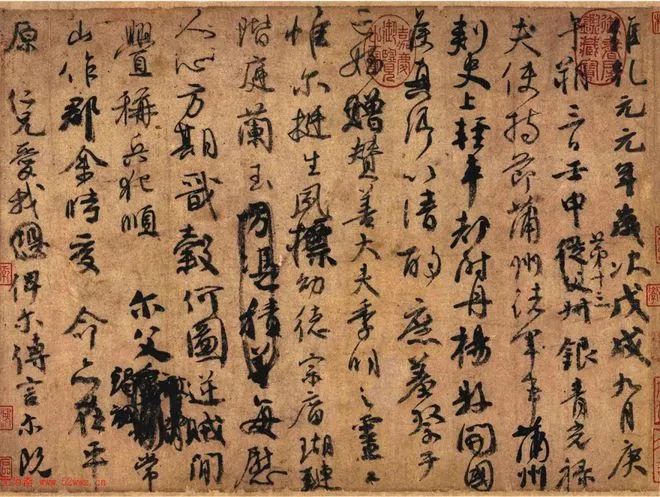 維乾元元年歲次戊戌九月庚
午朔三日壬申第十三叔銀青光祿
夫使持節蒲州諸軍事蒲州
刺史上輕車都尉丹楊縣開國
侯真卿以清酌庶羞祭于
亡姪贈贊善大夫季明之靈曰
惟尔挺生夙標幼德宗廟瑚璉
階庭蘭玉方憑積善每慰
人心方期戩穀何圖逆賊間
釁稱兵犯順 尔父竭誠常
山作郡余時受 命亦在平
原 仁兄愛我俾尔傳言尔既
嘉慶御覽之寶